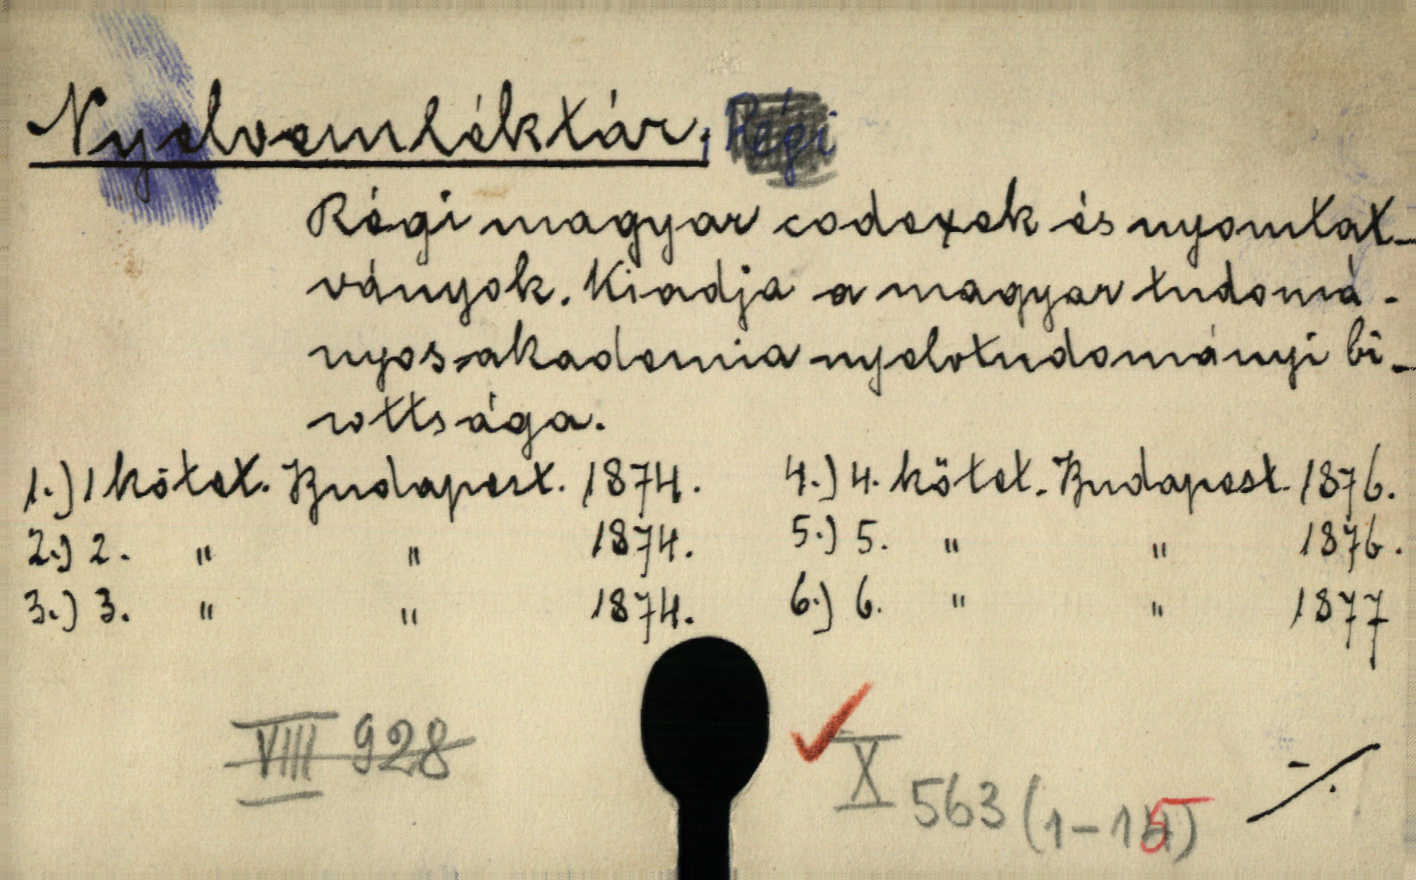 Nyelvemléktár; Régi
Régi magyar codexek és nyomtat-
ványok. Kiadja a magyar tudomá-
nyos-akademia nyelvtudományi bi-
zottsága.
1.) 1 kötet. Budapest. 1874.
2.) 2. " " 1874.
3.) 3. " " 1874.
4.) 4. kötet. Budapest. 1876.
5.) 5. " " 1876.
6.) 6. " " 1877
VIII 928
X 563 (1-15)
./.